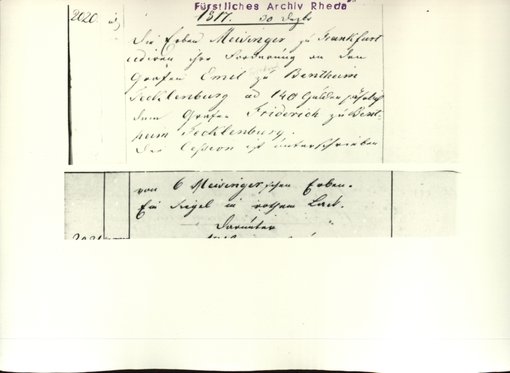 Fürstliches Archiv Rheda
2020
1817. 30
Die Erben Meisinger zu Frankfurt
cediren ihre Forderung an den
Grafen Emel zu Bentheim
Tecklenburg ad 140 Gulden jährlich
dem Grafen Friderich zu Bent-
heim Tecklenburg.
Die Cession ist unterschrieben
von 6 Meisingerschen Erben.
Ein Siegel in rothem Lack.
Darunter